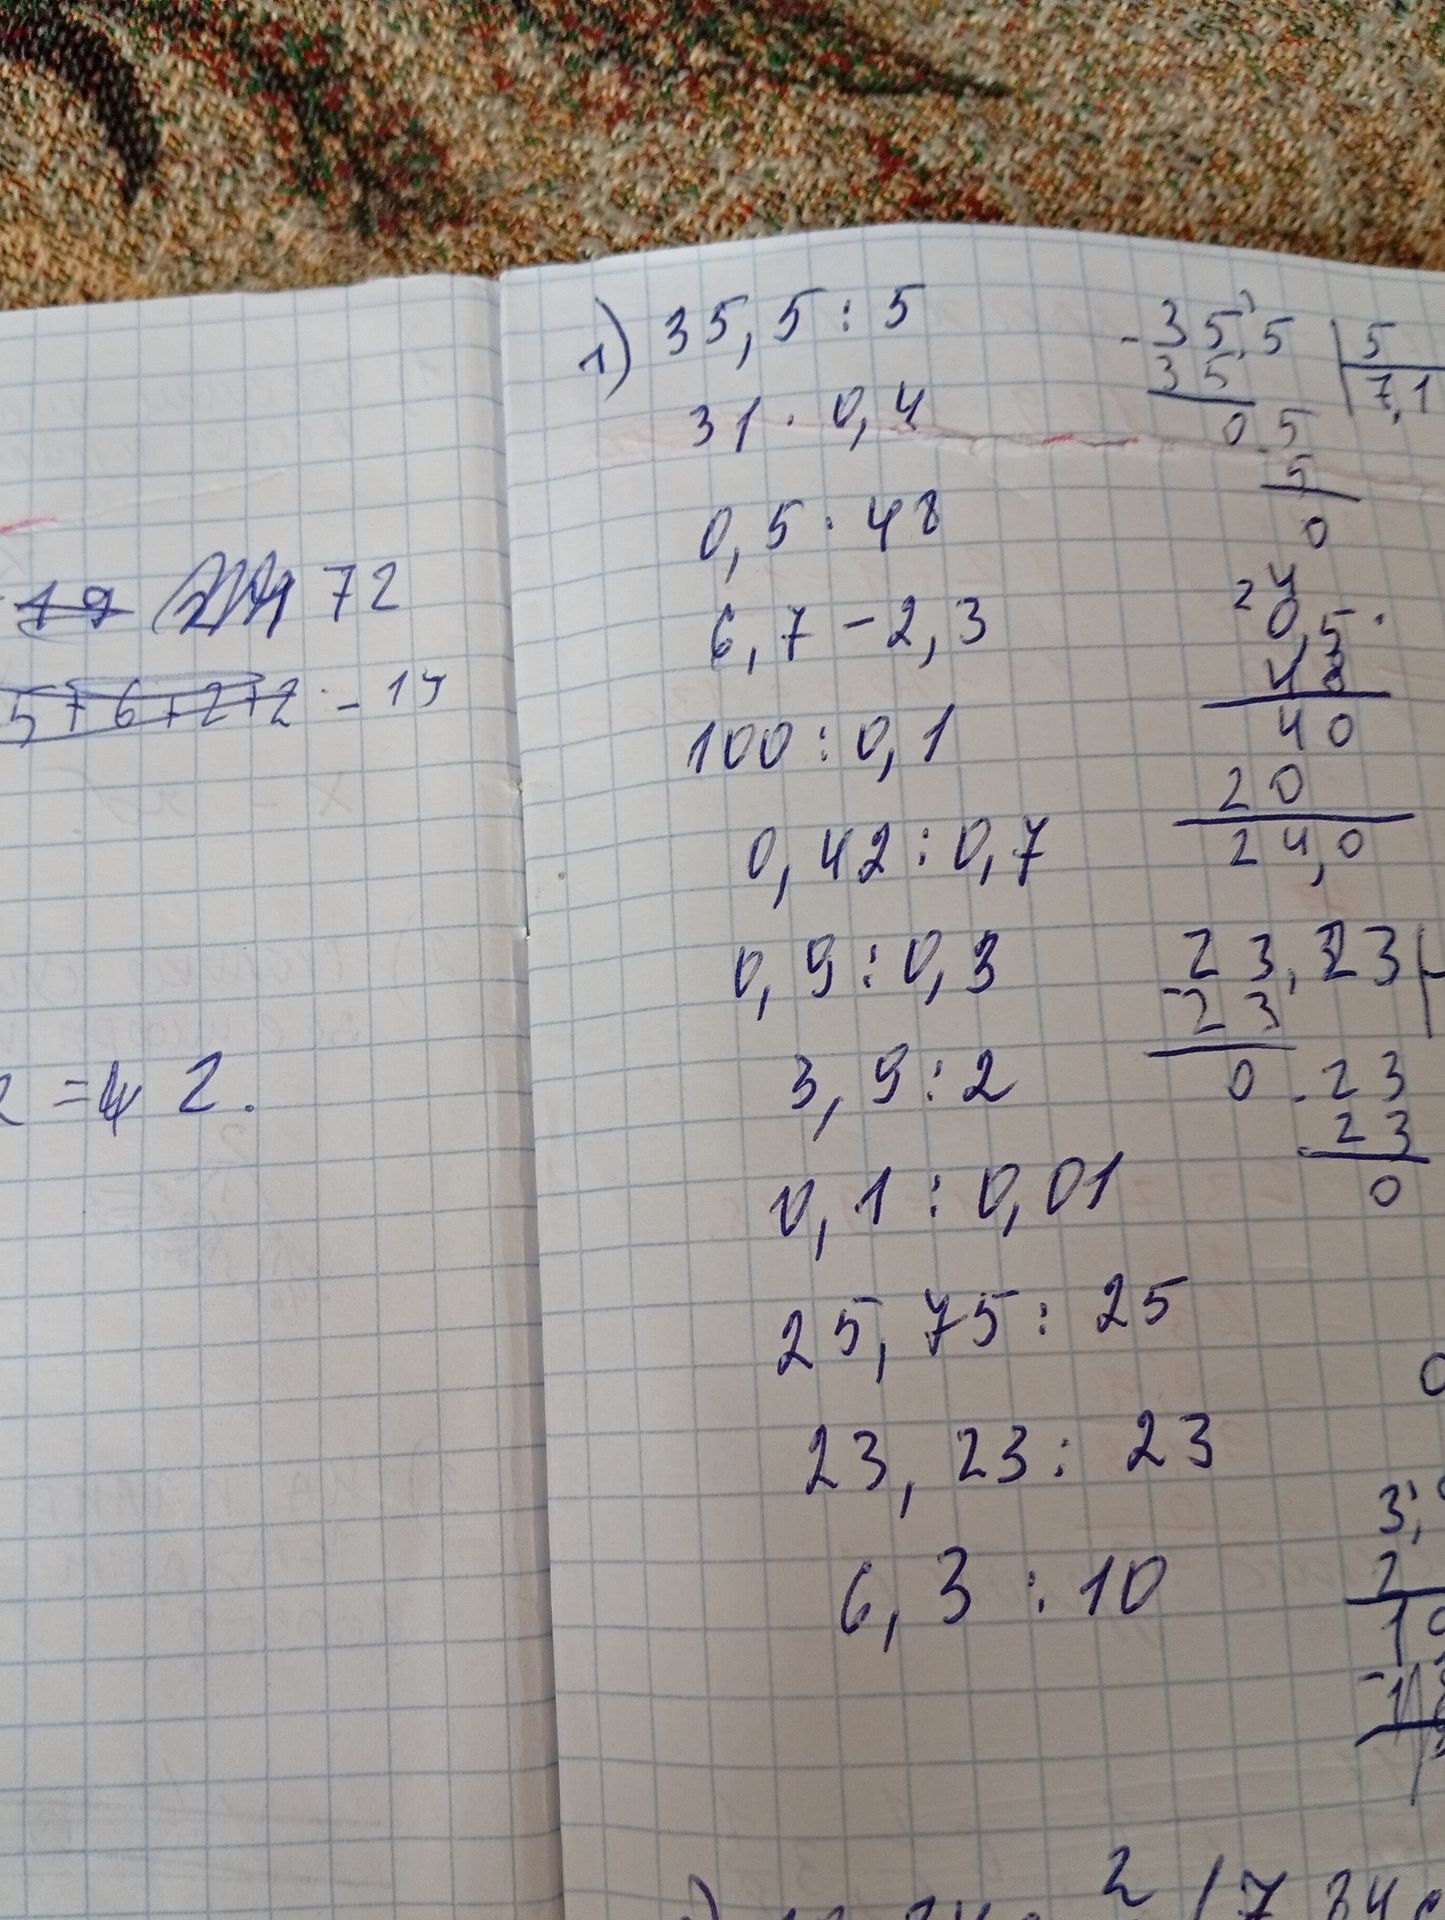 72
5+6+2+2 - 14
= 4 2.
1) 35,5 : 5
31 · 0,4
0,5 · 48
6,7 - 2,3
100 : 0,1
0,42 : 0,7
0,9 : 0,3
3,9 : 2
0,1 : 0,01
25,75 : 25
23,23 : 23
6,3 : 10
- 35,5 | 5
35 | 7,1
0 5
5
0
2 4
0,5 ·
48
40
20
24,0
23,23
- 23
0 - 23
23
0
3,
2
1
- 1